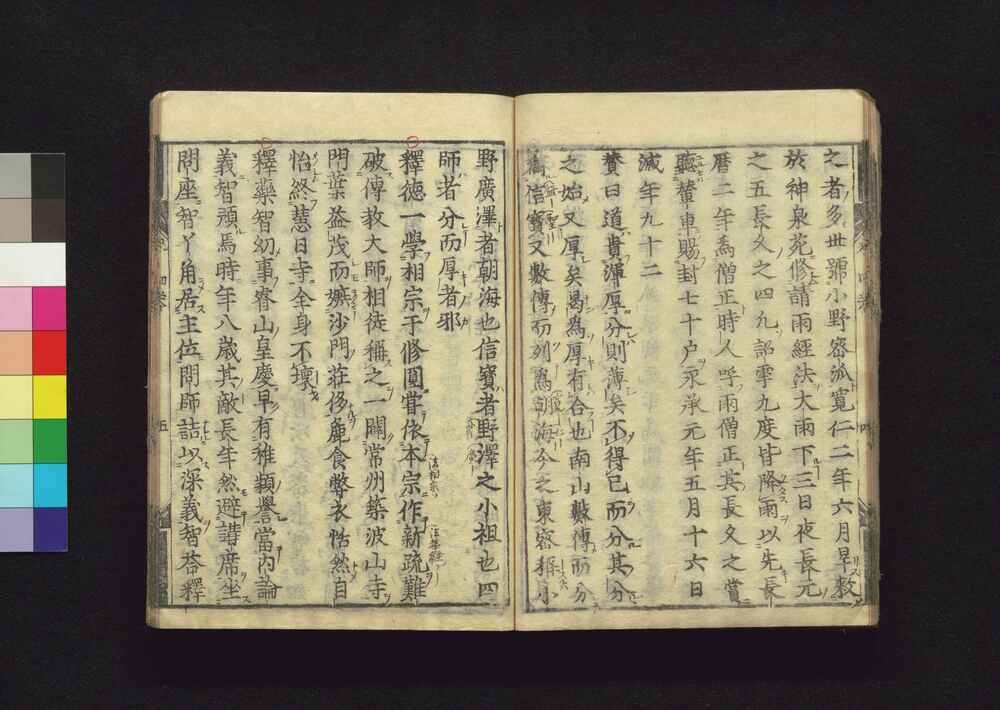 之者多世號小野密派寛仁二年六月旱敕
於神泉苑修請雨經法大雨下三日夜長元
之五長久之四九詔雩九度皆降雨以先長
暦二年爲僧正時人呼雨僧正其長久之賞
聽輦車賜封七十戸永承元年五月十六日
滅年九十二
賛曰道貴渾厚分則薄矣不得已而分其分
之始又厚矣曷爲厚有合也南山數傳而分
信寶又數傳而列爲朝海今之東密稱小
野廣澤者朝海也信寶者野澤之小祖也四
師者分而厚者邪
釋德一學相宗于修圓嘗依本宗作新疏難
破傳教大師相徒稱之一闢常州築波山寺
門葉益茂而嫉沙門莊侈麁食弊衣恬然自
怡終慧日寺全身不壞
釋藥智幼事睿山皇慶早有穎譽當内論
義智預焉時年八歳其敵長年然避諸席坐
問座智丫角居主位問師詰以深義智答釋